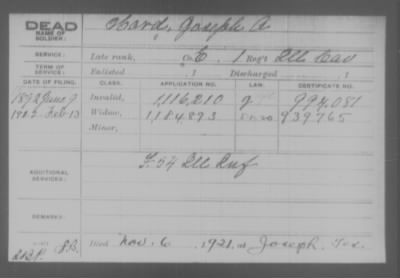 DEAD
NAME OF SOLDIER:
Joseph A
SERVICE:
Late rank, Co. E, 1 Reg't Ill Cav
TERM OF SERVICE:
Enlisted , 1 Discharged , 1
DATE OF FILING. CLASS. APPLICATION NO. LAW. CERTIFICATE NO.
1892 June 9 Invalid, 1,116,210 g
Feb 13 Widow, 1,184,893 939765
Minor,
ADDITIONAL SERVICES:
F. 54 Ill Inf
REMARKS:
Died Nov. 6, 1921, at Joseph,